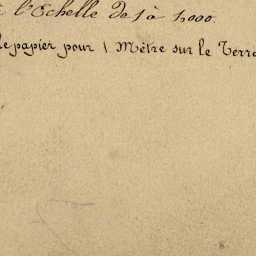 l'Echelle de 1 à 1,000.
le papier pour 1 Mètre sur le Terra